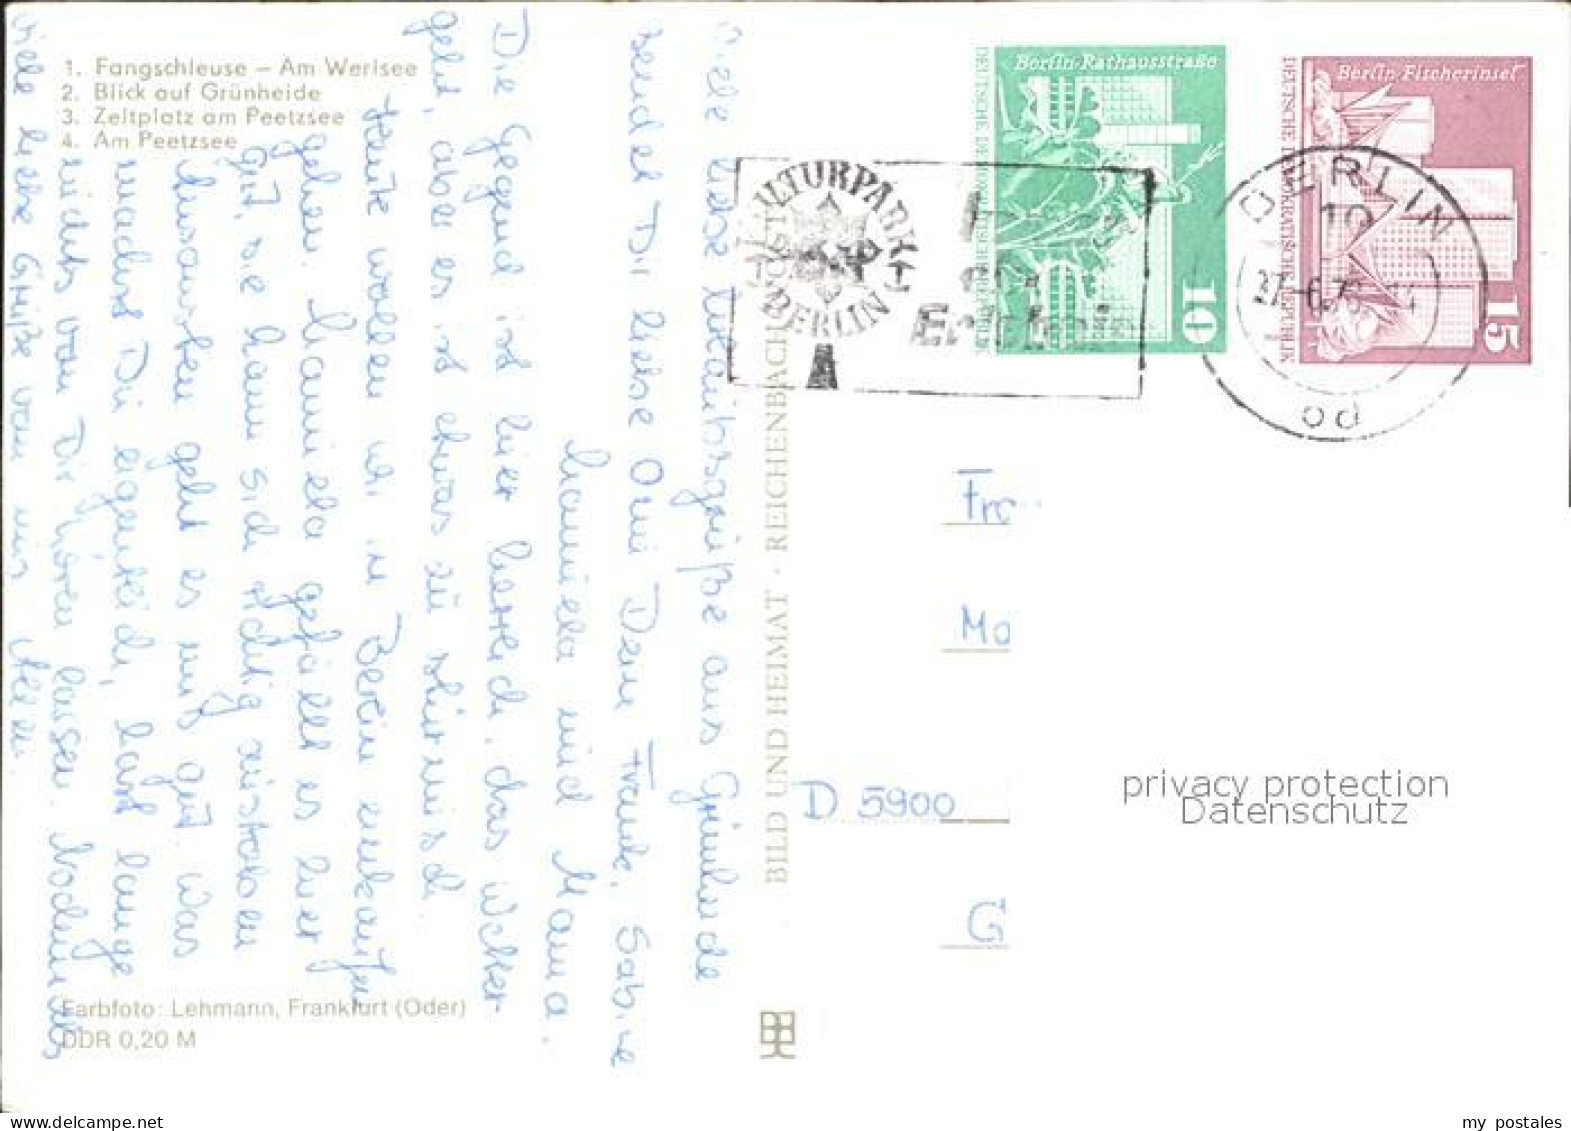 1. Fangschleuse – Am Werlsee
2. Blick auf Grünheide
3. Zeltplatz am Peetzsee
4. Am Peetzsee
Viele liebe Urlaubsgrüße aus Grünheide
sendet Dir liebe Omi Dein Frank, Sabine
und Mama.
Die Gegend ist hier herrlich, das Wetter
geht, aber es ist etwas zu stürmisch.
Heute wollen wir in Berlin einkaufen
gehen. gefällt es hier
gut, sie kann sich richtig austoben
Ansonsten geht es uns gut was
machst Du eigentlich, hast lange
nichts von Dir hören lassen. Nochmals
viele liebe Grüße von uns allen.
Farbfoto: Lehmann, Frankfurt (Oder)
DDR 0,20 M
BILD UND HEIMAT · REICHENBACH
KULTURPARK
BERLIN
Berlin-Rathausstraße
DEUTSCHE DEMOKRATISCHE REPUBLIK
10
Berlin-Fischerinsel
DEUTSCHE DEMOKRATISCHE REPUBLIK
15
BERLIN
10
Fra
Ma
D 5900
G
privacy protection
Datenschutz
my postales